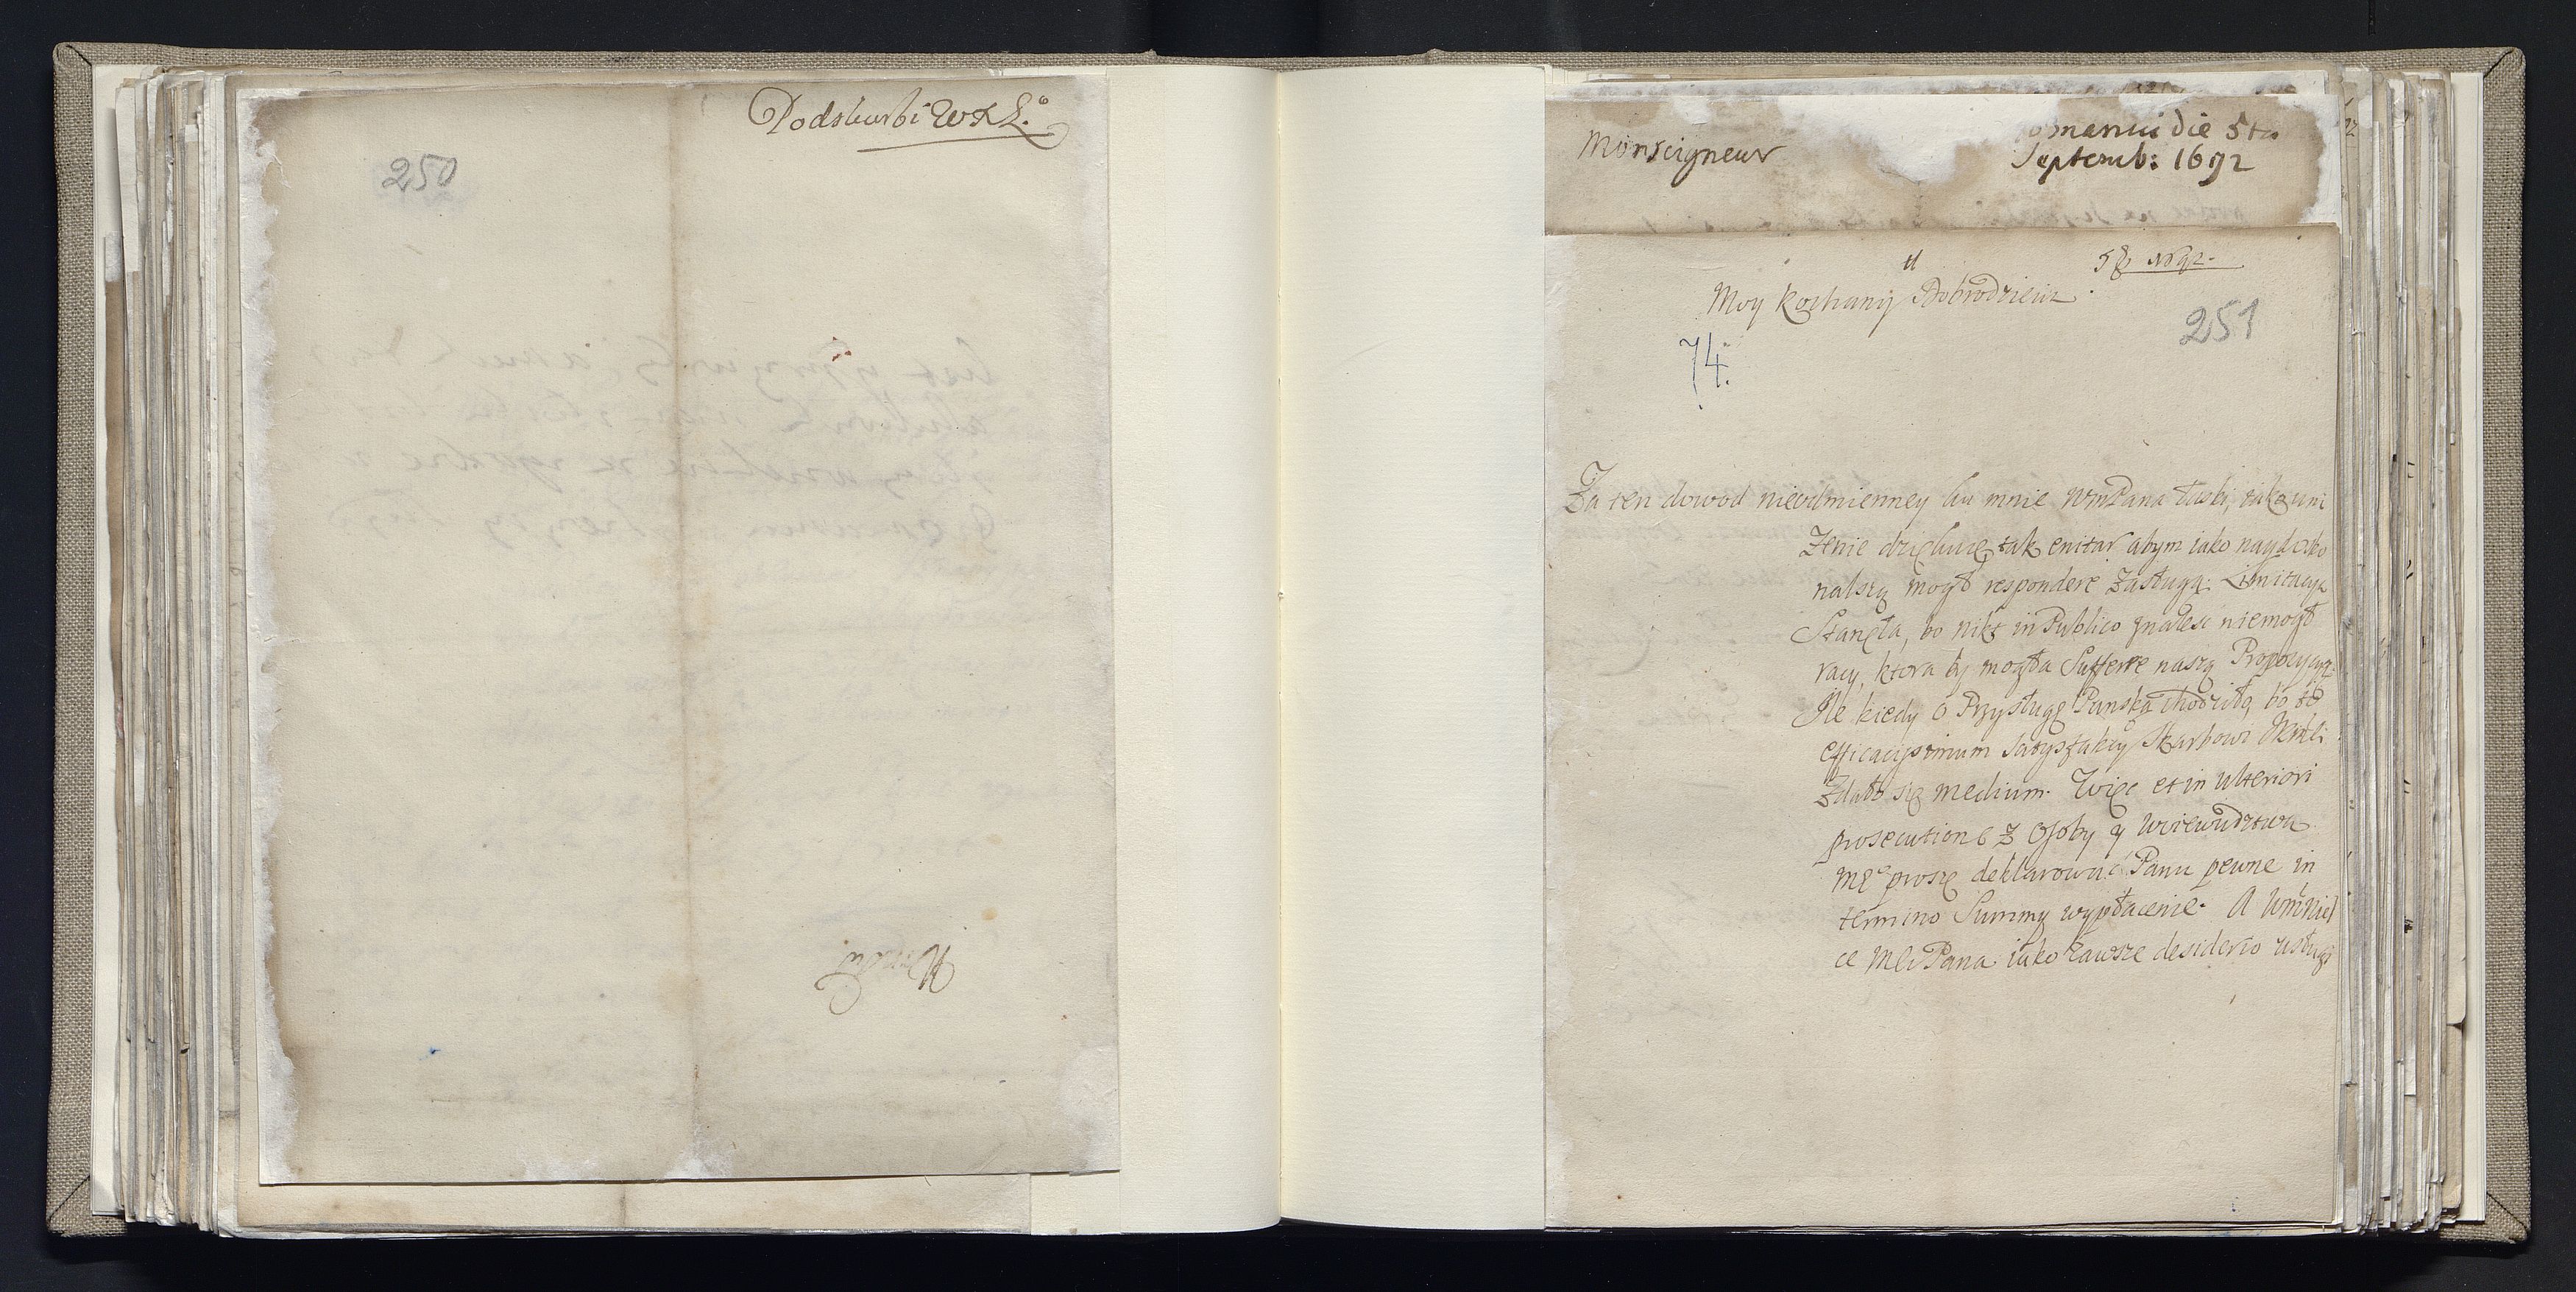 Podskarbi WXLo
250
Monseigneur
omanui die 5ta
Septemb: 1692
1692.
Moy Kochany Dobrodzieiu
251
74.
Za ten dowod nieodmienney ku mnie WmPana łaski, iak uni
żenie dziękuię tak enitar abym iako naydosko
nalszą mogł respondere zasługą. Limitacya
Stanęła, bo nikt in Publico znalesc niemogł
racy, ktora by mogła Sufferre naszą Propozycyą.
Ile kiedy o Przysługę Panską chodziło, bo to
efficacissimum satysfakcy Skarbowi
Zdało się medium. Więc et in ulteriori
prosecutione z Osoby y Woiewodztwa
mego proszę deklarowac Panu pewne in
termino Summy wypłacenie. A
ce Mci Pana iako zawsze desiderio usługi